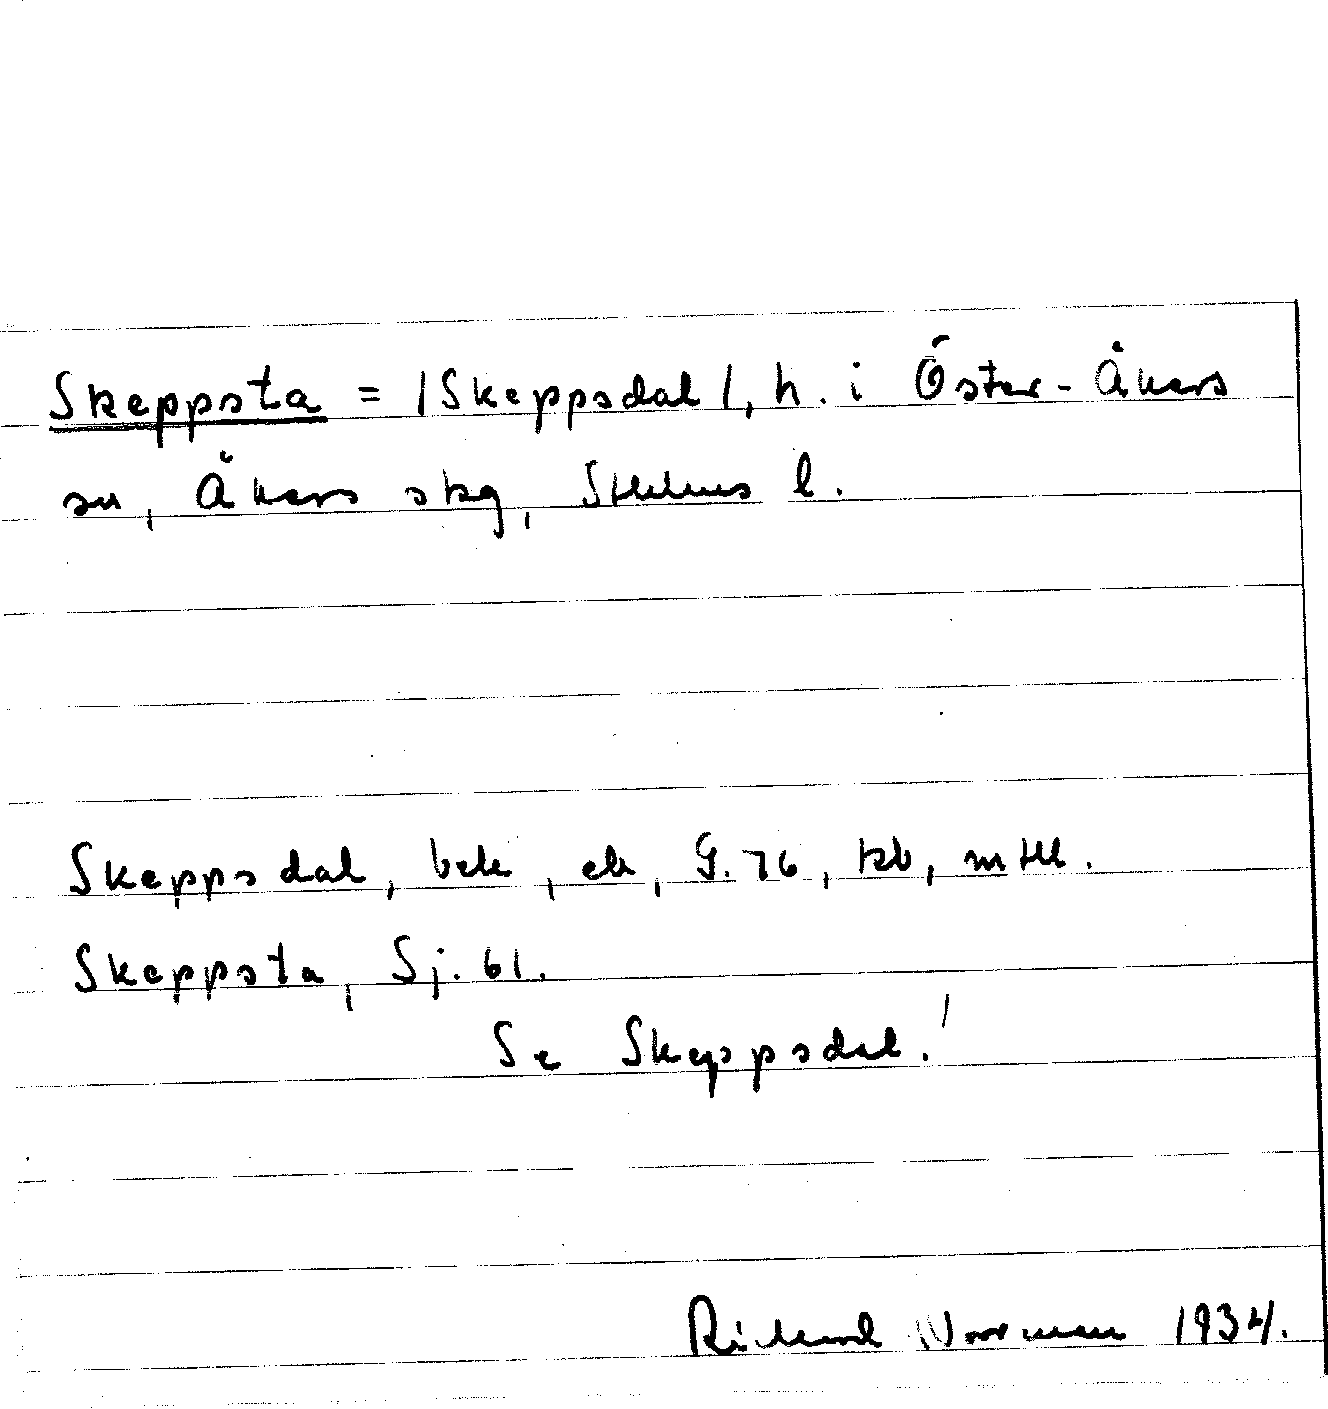 Skeppsta = /Skeppsdal/, h. i Öster-Åkers
sn, Åkers skg, Sthlms l.
Skeppsdal, bek, ek, G. 76, kb, mtl.
Skeppsta, Sj. 61.
Se Skeppsdal!
Rickard Norrman 1934.